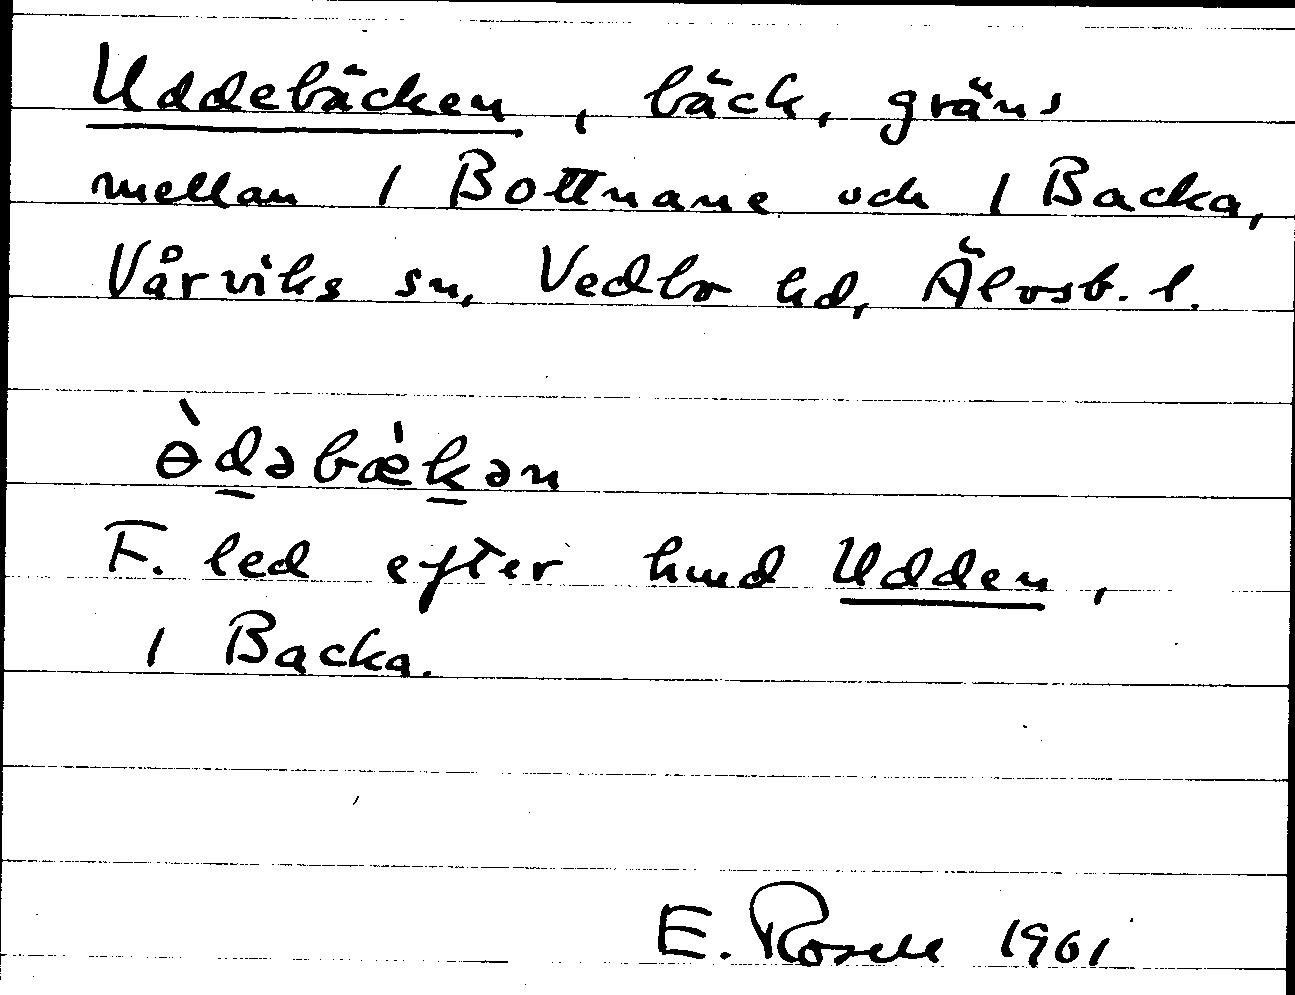 Uddebäcken, bäck, gräns
mellan 1 Bottnane och 1 Backa,
Vårviks sn, Vedbo hd, Älvsb. l.
ɵ̀dəbæ̀kən
F. led efter hmd Udden,
1 Backa.
E. Rosell 1961